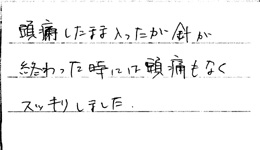 頭痛したまま入ったが針が
終わった時には頭痛もなく
スッキリしました.